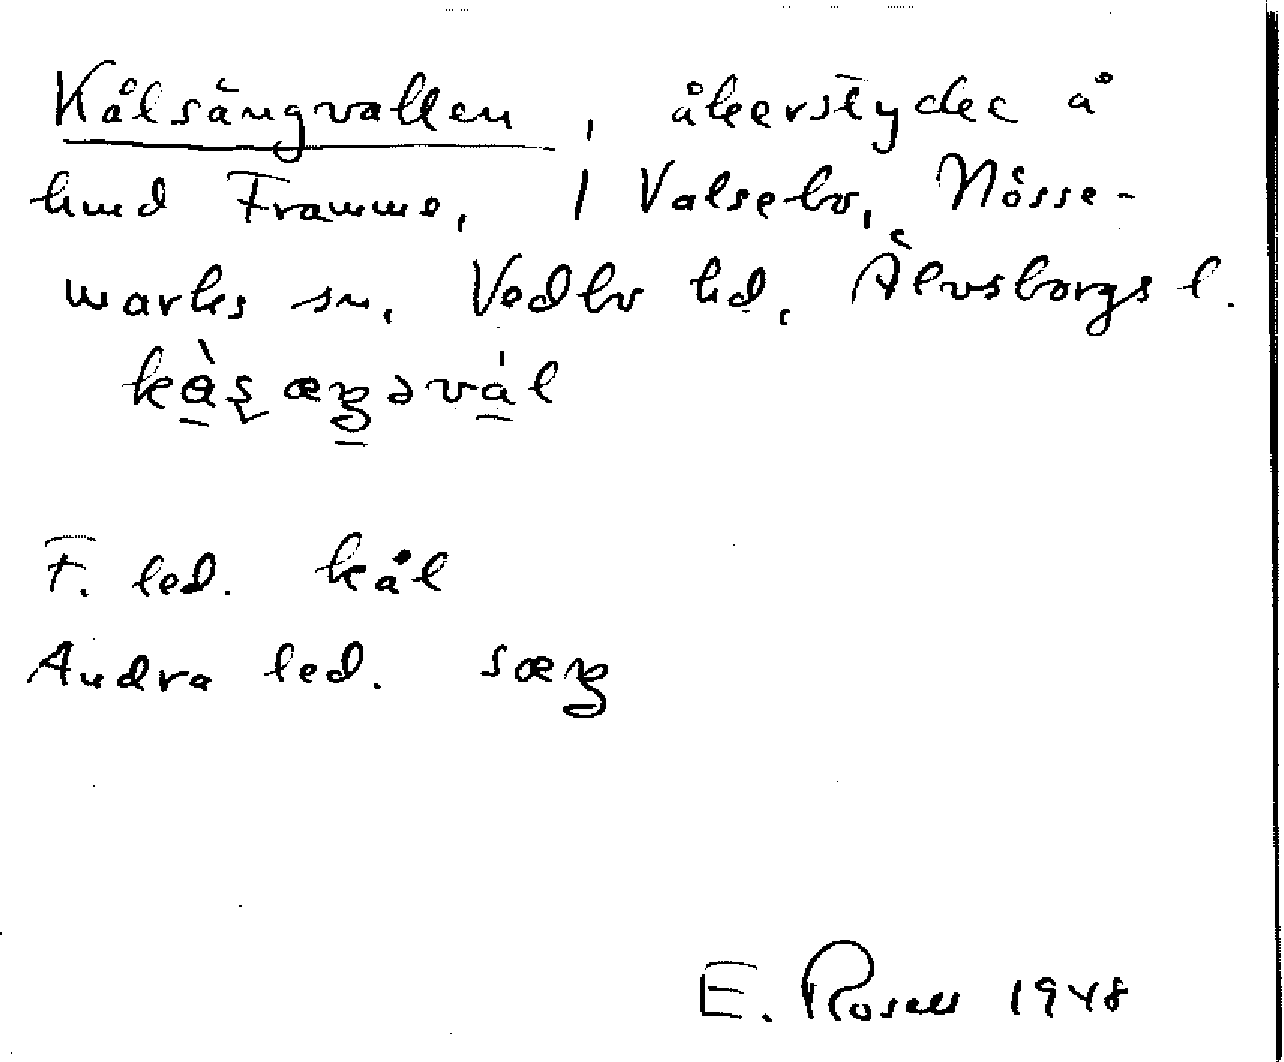 Kålsängvallen, åkerstycke å
hmd Framme, 1 Valsebo, Nösse-
marks sn, Vedbo hd, Älvsborgs l.
kàșæŋəvál
F. led. kål
Andra led. sæŋ
E. Rosell 1948